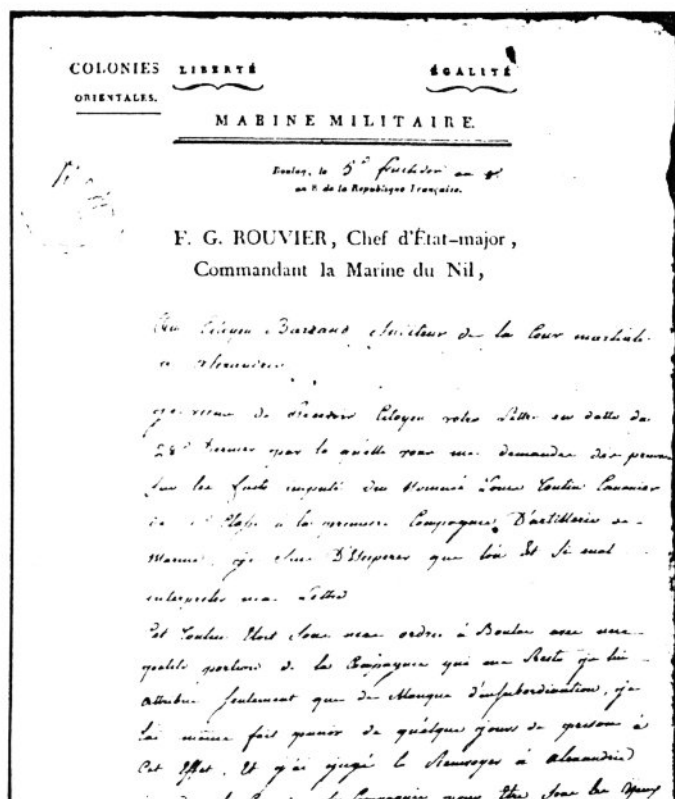 COLONIES
ORIENTALES.
LIBERTÉ
ÉGALITÉ
MARINE MILITAIRE.
Boulaq, le 5e fructidor an 8
an 8 de la République Française.
F. G. ROUVIER, Chef d'État-major,
Commandant la Marine du Nil,
Au Citoyen Barraud de la Cour martiale
a alexandrie
je de Citoyen votre Lettre en datte du
28 dernier par la quelle vous me demandez des
sur les faits imputé Nommé Louis Canonier
de a la premiere Compagnie D'artillerie de
Marine, je que l'on Et Si mal
interpreter ma Lettre
Cet Etoit Sous mes ordres à Boulac avec une
petite portion de la Compagnie qui me Reste je lui
attribue seulement que de Manque d'insubordination, je
l'ai même fait punir de quelque jours de prison à
Cet Effet, Et j'ai jugé le Renvoyer à alexandrie
la Compagnie pour être Sous les yeux